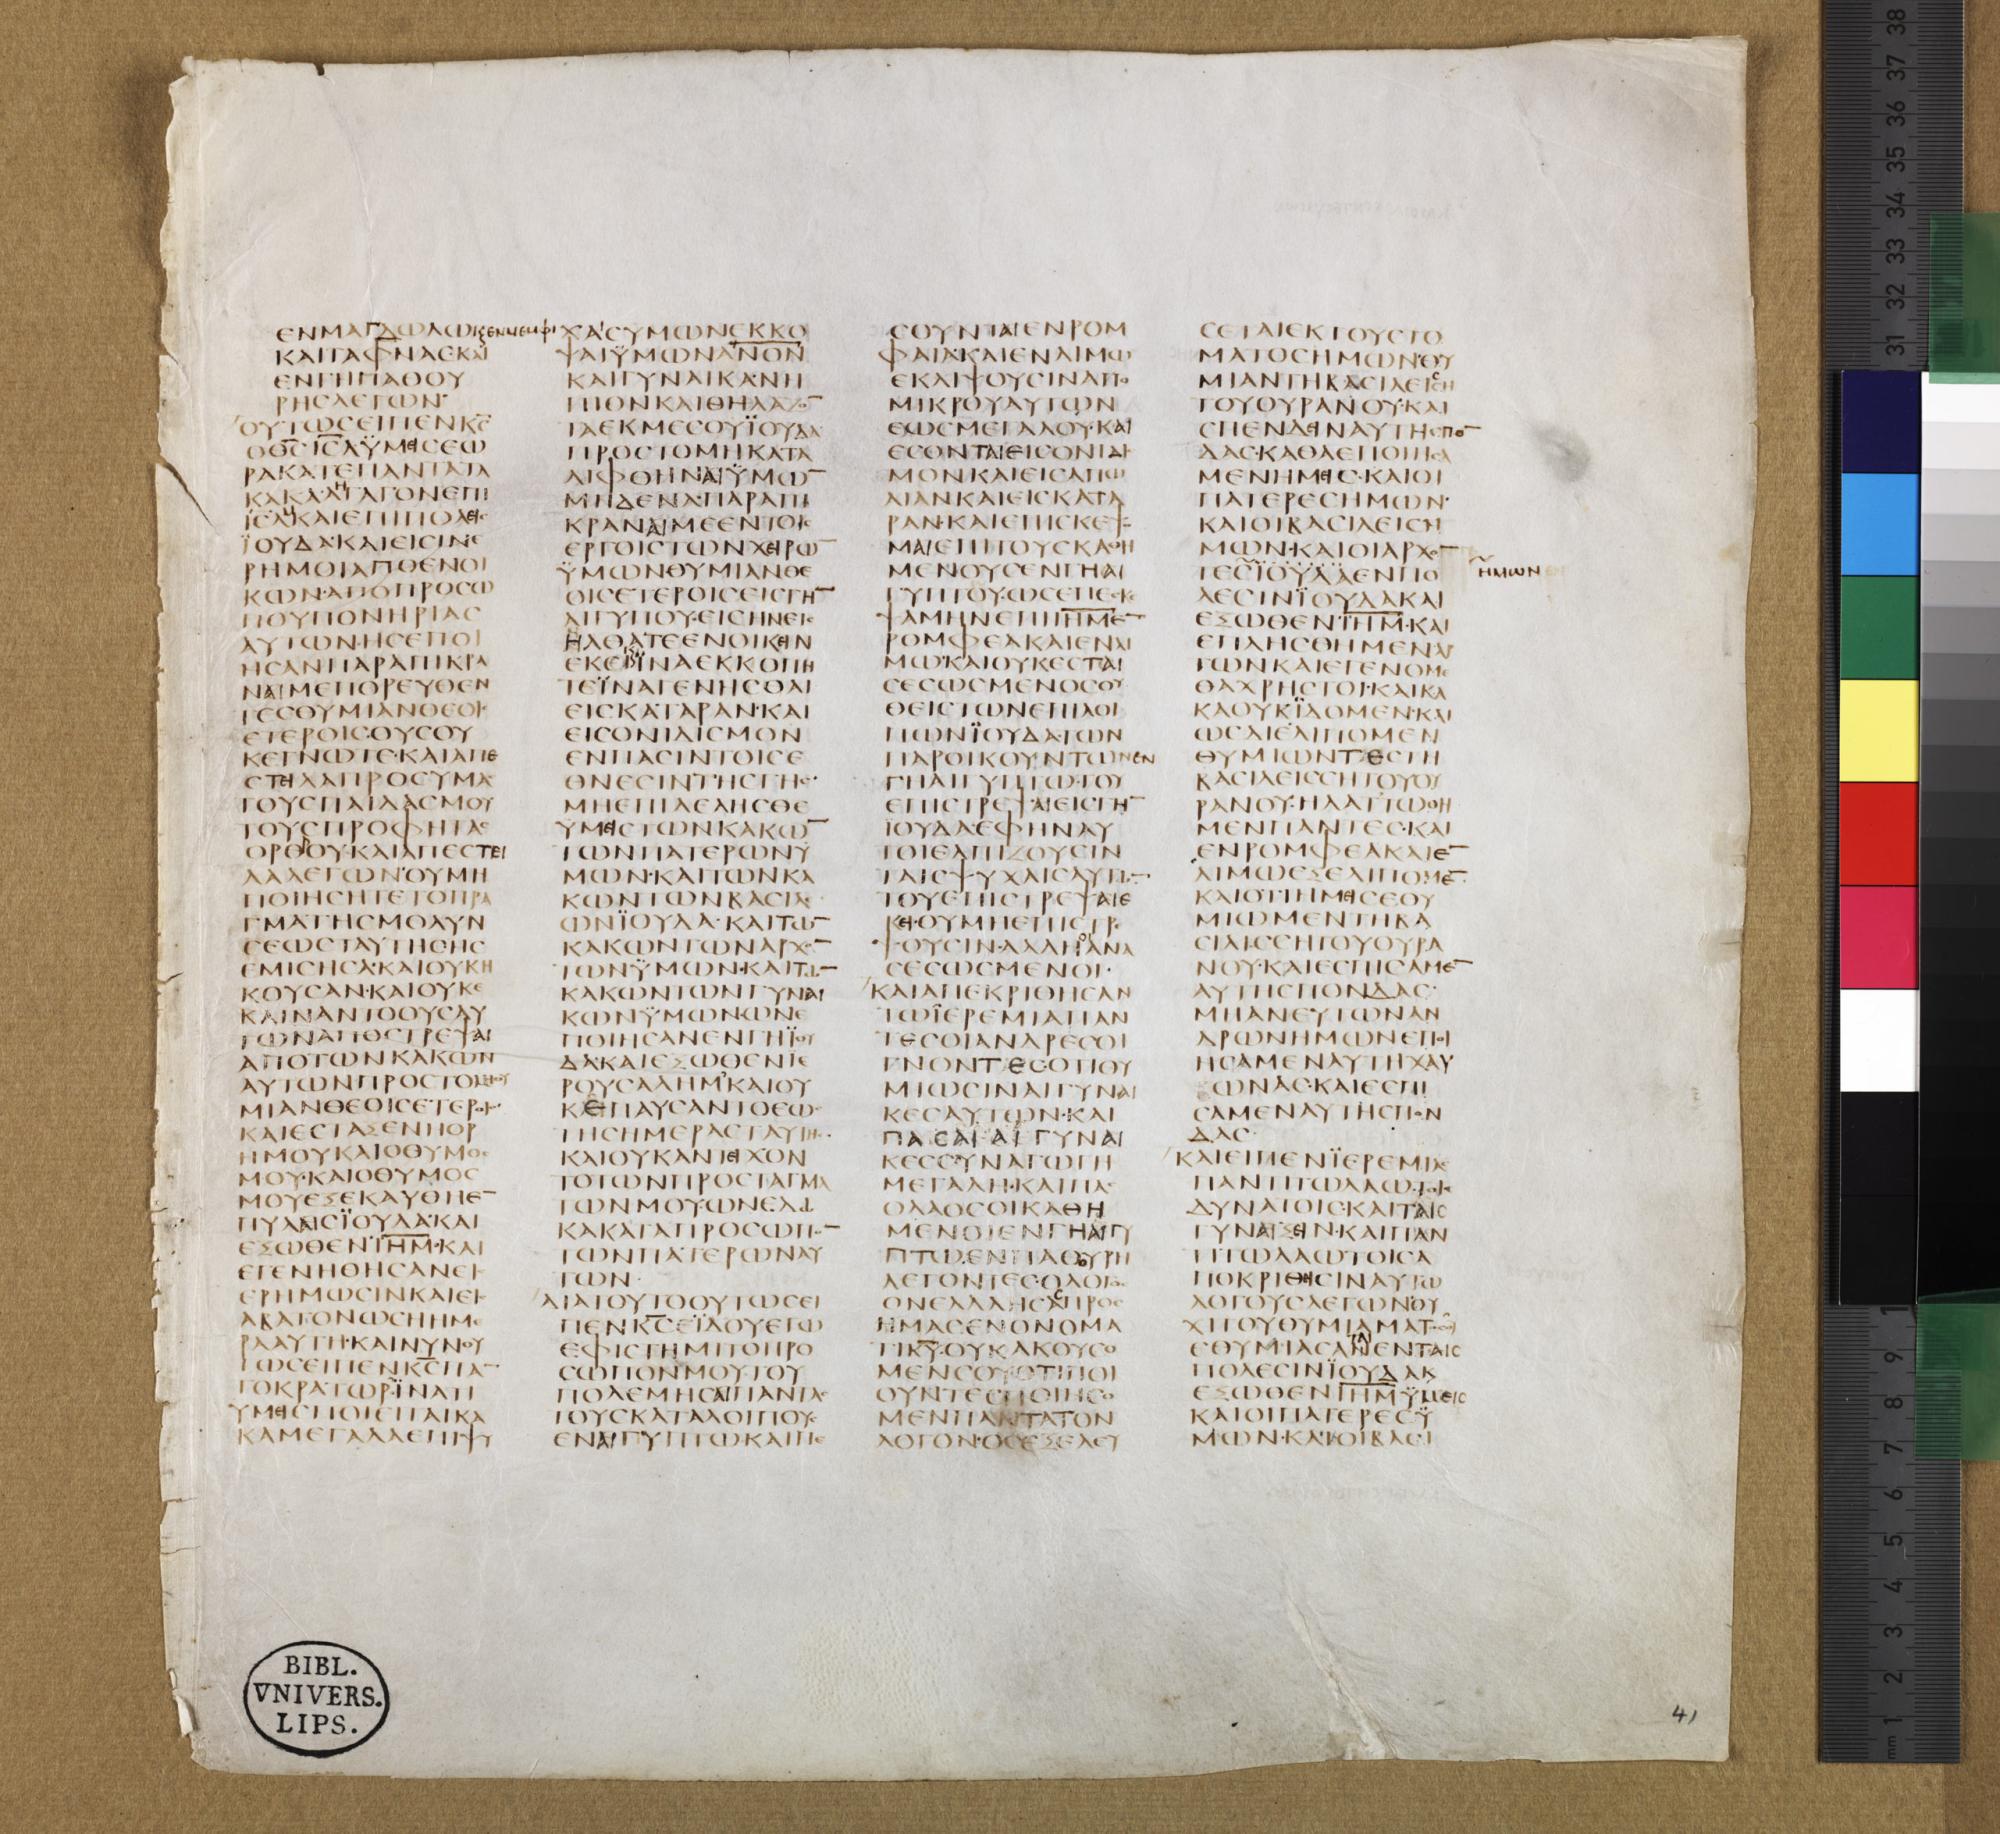 ΕΝΜΑΓΔΩΛΩ ΚΕΝΜΕΜΦΙ
ΚΑΙΤΑΦΝΑΣΚΑΙ
ΕΝΓΗΠΑΘΟΥ
ΡΗΣΛΕΓΩΝ
ΟΥΤΩΣΕΙΠΕΝΚΣ
ΟΘΣΙΣΛΫΜΕΙΣΕΩ
ΡΑΚΑΤΕΠΑΝΤΑΤΑ
ΚΑΚΑΑΓΑΓΟΝΕΠΙ
ΙΣΛΚΑΙΕΠΙΠΟΛΕΙΣ
ΪΟΥΔΑ·ΚΑΙΕΙΣΙΝΕ
ΡΗΜΟΙΑΠΟΕΝΟΙ
ΚΩΝ·ΑΠΟΠΡΟΣΩ
ΠΟΥΠΟΝΗΡΙΑΣ
ΑΥΤΩΝ·ΗΣΕΠΟΙ
ΗΣΑΝΠΑΡΑΠΙΚΡΑ
ΝΑΙΜΕΠΟΡΕΥΘΕΝ
ΤΕΣΘΥΜΙΑΝΘΕΟΙΣ
ΕΤΕΡΟΙΣΟΥΣΟΥ
ΚΕΓΝΩΤΕ·ΚΑΙΑΠΕ
ΣΤΕΙΛΑΠΡΟΣΥΜΑΣ
ΤΟΥΣΠΑΙΔΑΣΜΟΥ
ΤΟΥΣΠΡΟΦΗΤΑΣ
ΟΡΘΟΥ·ΚΑΙΑΠΕΣΤΕΙ
ΛΑΛΕΓΩΝΟΥΜΗ
ΠΟΙΗΣΗΤΕΤΟΠΡΑ
ΓΜΑΤΗΣΜΟΛΥΝ
ΣΕΩΣΤΑΥΤΗΣΗΣ
ΕΜΙΣΗΣΑ·ΚΑΙΟΥΚΗ
ΚΟΥΣΑΝ·ΚΑΙΟΥΚΕ
ΚΛΙΝΑΝΤΟΟΥΣΑΥ
ΤΩΝΑΠΟΣΤΡΕΨΑΙ
ΑΠΟΤΩΝΚΑΚΩΝ
ΑΥΤΩΝΠΡΟΣΤΟΜΗΘΥ
ΜΙΑΝΘΕΟΙΣΕΤΕΡΟΙΣ
ΚΑΙΕΣΤΑΞΕΝΗΟΡ
ΗΜΟΥΚΑΙΟΘΥΜΟΣ
ΜΟΥ·ΚΑΙΟΘΥΜΟΣ
ΜΟΥΕΞΕΚΑΥΘΗΕ¯
ΠΥΛΑΙΣΪΟΥΔΑ·ΚΑΙ
ΕΞΩΘΕΝΪΗΜ·ΚΑΙ
ΕΓΕΝΗΘΗΣΑΝΕΙΣ
ΕΡΗΜΩΣΙΝΚΑΙΕΙΣ
ΑΒΑΤΟΝΩΣΗΗΜΕ
ΡΑΑΥΤΗ·ΚΑΙΝΥΝΟΥ
ΤΩΣΕΙΠΕΝΚΣΠΑ¯
ΤΟΚΡΑΤΩΡΪΝΑΤΙ
ΥΜΕΙΣΠΟΙΕΙΤΑΙΚΑ
ΚΑΜΕΓΑΛΑΕΠΙΨΥ
ΧΑΣΥΜΩΝΕΚΚΟ
ΨΑΙΫΜΩΝΑΝΟΝ
ΚΑΙΓΥΝΑΙΚΑΝΗ
ΠΙΟΝΚΑΙΘΗΛΑΖΟ¯
ΤΑΕΚΜΕΣΟΥΪΟΥΔΑ
ΠΡΟΣΤΟΜΗΚΑΤΑ
ΛΙΦΘΗΝΑΙΫΜΩ¯
ΜΗΔΕΝΑ·ΠΑΡΑΠΙ
ΚΡΑΝΑΙΜΕΕΝΤΟΙΣ
ΕΡΓΟΙΣΤΩΝΧΕΙΡΩ¯
ΫΜΩΝΘΥΜΙΑΝΘΕ
ΟΙΣΕΤΕΡΟΙΣΕΙΣΓΗ¯
ΑΙΓΥΠΟΥ·ΕΙΣΗΝΕΙΣ
ΗΛΘΑΤΕΕΝΟΙΚΕΙΝ
ΕΚΕΙΪΝΑΕΚΚΟΠΗ
ΤΕΪΝΑΓΕΝΗΣΘΑΙ
ΕΙΣΚΑΤΑΡΑΝ·ΚΑΙ
ΕΙΣΟΝΙΔΙΣΜΟΝ
ΕΝΠΑΣΙΝΤΟΙΣΕ
ΘΝΕΣΙΝΤΗΣΓΗΣ·
ΜΗΕΠΙΛΕΛΗΣΘΕ
ΫΜΕΙΣΤΩΝΚΑΚΩ¯
ΤΩΝΠΑΤΕΡΩΝΥ
ΜΩΝ·ΚΑΙΤΩΝΚΑ
ΚΩΝΤΩΝΒΑΣΙΛΕ
ΩΝΪΟΥΔΑ·ΚΑΙΤΩ¯
ΚΑΚΩΝΤΩΝΑΡΧΟ¯
ΤΩΝΫΜΩΝ·ΚΑΙΤΩ¯
ΚΑΚΩΝΤΩΝΓΥΝΑΙ
ΚΩΝΫΜΩΝ·ΩΝΕ
ΠΟΙΗΣΑΝΕΝΓΗΪΟΥ
ΔΑ·ΚΑΙΕΞΩΘΕΝΪΕ
ΡΟΥΣΑΛΗΜ·ΚΑΙΟΥ
ΚΕΠΑΥΣΑΝΤΟΕΩΣ
ΤΗΣΗΜΕΡΑΣΤΑΥΤΗΣ·
ΚΑΙΟΥΚΑΝΤΕΙΧΟΝ
ΤΟΤΩΝΠΡΟΣΤΑΓΜΑ
ΤΩΝΜΟΥ·ΩΝΕΔΩ
ΚΑΚΑΤΑΠΡΟΣΩΠΟ¯
ΤΩΝΠΑΤΕΡΩΝΑΥ
ΤΩΝ·
ΔΙΑΤΟΥΤΟΟΥΤΩΣΕΙ
ΠΕΝΚΣΕΪΔΟΥΕΓΩ
ΕΦΙΣΤΗΜΙΤΟΠΡΟ
ΣΩΠΟΝΜΟΥ·ΤΟΥ
ΠΟΛΕΜΗΣΑΙΠΑΝΤΑΣ
ΤΟΥΣΚΑΤΑΛΟΙΠΟΥΣ
ΕΝΑΙΓΥΠΤΩΚΑΙΠΕ
ΣΟΥΝΤΑΙΕΝΡΟΜ
ΦΑΙΑ·ΚΑΙΕΝΛΙΜΩ
ΕΚΛΙΨΟΥΣΙΝΑΠΟ
ΜΙΚΡΟΥΑΥΤΩΝ
ΕΩΣΜΕΓΑΛΟΥ·ΚΑΙ
ΕΣΟΝΤΑΙΕΙΣΟΝΙΔΙΣ
ΜΟΝΚΑΙΕΙΣΑΠΩ
ΛΙΑΝΚΑΙΕΙΣΚΑΤΑ
ΡΑΝ·ΚΑΙΕΠΙΣΚΕΨΟ
ΜΑΙΕΠΙΤΟΥΣΚΑΘΗ
ΜΕΝΟΥΣΕΝΓΗΑΙ
ΓΥΠΤΟΥ·ΩΣΕΠΕΣΚΕ
ΨΑΜΗΝΕΠΙΪΗΜΕ¯
ΡΟΜΦΕΑΚΑΙΕΝΛΙ
ΜΩ·ΚΑΙΟΥΚΕΣΤΑΙ
ΣΕΣΩΣΜΕΝΟΣΟΥ
ΘΕΙΣΤΩΝΕΠΙΛΟΙ
ΠΩΝΪΟΥΔΑ·ΤΩΝ
ΠΑΡΟΙΚΟΥΝΤΩΝΕΝ
ΓΗΑΙΓΥΠΤΩ·ΤΟΥ
ΕΠΙΣΤΡΕΨΑΙΕΙΣΓΗ¯
ΪΟΥΔΑ·ΕΦΗΝΑΥ
ΤΟΙΕΛΠΙΖΟΥΣΙΝ
ΤΑΙΣΨΥΧΑΙΣΑΥΤΩ¯
ΤΟΥΕΠΙΣΤΡΕΨΑΙΕ
ΚΕΙ·ΟΥΜΗΕΠΙΣΤΡΕ
ΨΟΥΣΙΝ·ΑΛΛΗΟΙΑΝΑ
ΣΕΣΩΣΜΕΝΟΙ·
ΚΑΙΑΠΕΚΡΙΘΗΣΑΝ
ΤΩΪΕΡΕΜΙΑΠΑΝ
ΤΕΣΟΙΑΝΔΡΕΣΟΙ
ΓΝΟΝΤΕΣΟΤΙΘΥ
ΜΙΩΣΙΝΑΙΓΥΝΑΙ
ΚΕΣΑΥΤΩΝ·ΚΑΙ
ΠΑΣΑΙΑΙΓΥΝΑΙ
ΚΕΣΣΥΝΑΓΩΓΗ
ΜΕΓΑΛΗ·ΚΑΙΠΑΣ
ΟΛΑΟΣΟΙΚΑΘΗ
ΜΕΝΟΙΕΝΓΗΑΙΓΥ
ΠΤΩ·ΕΝΠΑΘΟΥΡΗ
ΛΕΓΟΝΤΕΣ·ΟΛΟΓΟΣ
ΟΝΕΛΑΛΗΣΑΣΠΡΟΣ
ΗΜΑΣΕΝΟΝΟΜΑ
ΤΙΚΥ·ΟΥΚΑΚΟΥΣΟ
ΜΕΝΣΟΥ·ΟΤΙΠΟΙ
ΟΥΝΤΕΣΠΟΙΗΣΟ
ΜΕΝΠΑΝΤΑΤΟΝ
ΛΟΓΟΝ·ΟΣΕΞΕΛΕΥ
ΣΕΤΑΙΕΚΤΟΥΣΤΟ
ΜΑΤΟΣΗΜΩΝΘΥ
ΜΙΑΝΤΗΒΑΣΙΛΕΙΣΣΗ
ΤΟΥΟΥΡΑΝΟΥ·ΚΑΙ
ΣΠΕΝΔΕΙΝΑΥΤΗΣΠΟ¯
ΔΑΣ·ΚΑΘΑΕΠΟΙΗΣΑ
ΜΕΝΗΜΕΙΣ·ΚΑΙΟΙ
ΠΑΤΕΡΕΣΗΜΩΝ·
ΚΑΙΟΙΒΑΣΙΛΕΙΣΗ
ΜΩΝ·ΚΑΙΟΙΑΡΧΟ¯
ΤΕΣΪΟΥΔΑΕΝΠΟ ΗΜΩΝΕΝ
ΛΕΣΙΝΪΟΥΔΑΚΑΙ
ΕΞΩΘΕΝΪΗΜ·ΚΑΙ
ΕΠΛΗΣΘΗΜΕΝΑΡ
ΤΩΝΚΑΙΕΓΕΝΟΜΕ
ΘΑΧΡΗΣΤΟΙ·ΚΑΙΚΑ
ΚΑΟΥΚΪΔΟΜΕΝ·ΚΑΙ
ΩΣΔΙΕΛΙΠΟΜΕΝ
ΘΥΜΙΩΝΤΕΣΤΗ
ΒΑΣΙΛΕΙΣΣΗΤΟΥΟΥ
ΡΑΝΟΥ·ΗΛΑΤΤΩΘΗ
ΜΕΝΠΑΝΤΕΣ·ΚΑΙ
ΕΝΡΟΜΦΕΑΚΑΙΕ¯
ΛΙΜΩΕΞΕΛΙΠΟΜΕ¯
ΚΑΙΟΤΙΗΜΕΙΣΕΘΥ
ΜΙΩΜΕΝΤΗΒΑ
ΣΙΛΙΣΣΗΤΟΥΟΥΡΑ
ΝΟΥ·ΚΑΙΕΣΠΙΣΑΜΕ¯
ΑΥΤΗΣΠΟΝΔΑΣ·
ΜΗΑΝΕΥΤΩΝΑΝ
ΔΡΩΝΗΜΩΝΕΠΟΙ
ΗΣΑΜΕΝΑΥΤΗΧΑΥ
ΩΝΑΣ·ΚΑΙΕΣΠΙ
ΣΑΜΕΝΑΥΤΗΣΠΟΝ
ΔΑΣ·
ΚΑΙΕΙΠΕΝΪΕΡΕΜΙΑΣ
ΠΑΝΤΙΤΩΛΑΩΤΟΙΣ
ΔΥΝΑΤΟΙΣ·ΚΑΙΤΑΙΣ
ΓΥΝΑΙΞΕΙΝ·ΚΑΙΠΑΝ
ΤΙΤΩΛΑΩΤΟΙΣΑ
ΠΟΚΡΙΘΕΙΣΙΝΑΥΤΩ
ΛΟΓΟΥΣΛΕΓΩΝΟΥ
ΧΙΤΟΥΘΥΜΙΑΜΑΤΟΣΟΥ
ΕΘΥΜΙΑΣΑΜΕΝΤΑΙΣ
ΠΟΛΕΣΙΝΪΟΥΔΑΚ
ΕΞΩΘΕΝΪΗΜΫΜΕΙΣ
ΚΑΙΟΙΠΑΤΕΡΕΣΫ
ΜΩΝ·ΚΑΙΟΙΒΑΣΙ
BIBL.
VNIVERS.
LIPS.
41